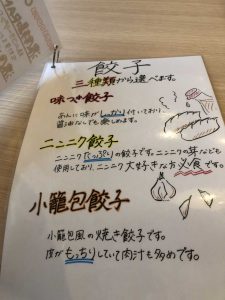 餃子
三種類から選べます。
味つき餃子
あんに味がしっかり付いており
醤油なしでも楽しめます。
ニンニク餃子
ニンニクたっぷりの餃子です。ニンニクの芽なども
使用しており、ニンニク大好きな方必食です。
小籠包餃子
小籠包風の焼き餃子です。
皮がもっちりしていて肉汁も多めです。